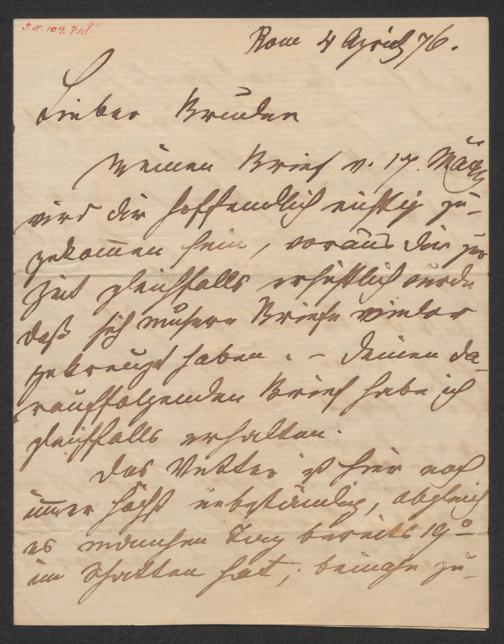 I.N. 109.718
Rom 4 April 76.
Lieber Bruder
Meinen Brief v. 17. März
wird dir hoffendlich richtig zu-
gekommen sein, woraus dir zur
Zeit gleichfalls ersichtlich wurde
daß sich unsere Briefe wieder
gekreuzt haben. – Deinen da-
rauffolgenden Brief habe ich
gleichfalls erhalten.
Das Wetter ist hier noch
immer höchst unbeständig, obgleich
es manchen Tag bereits 19°
im Schatten hat; beinahe zu-